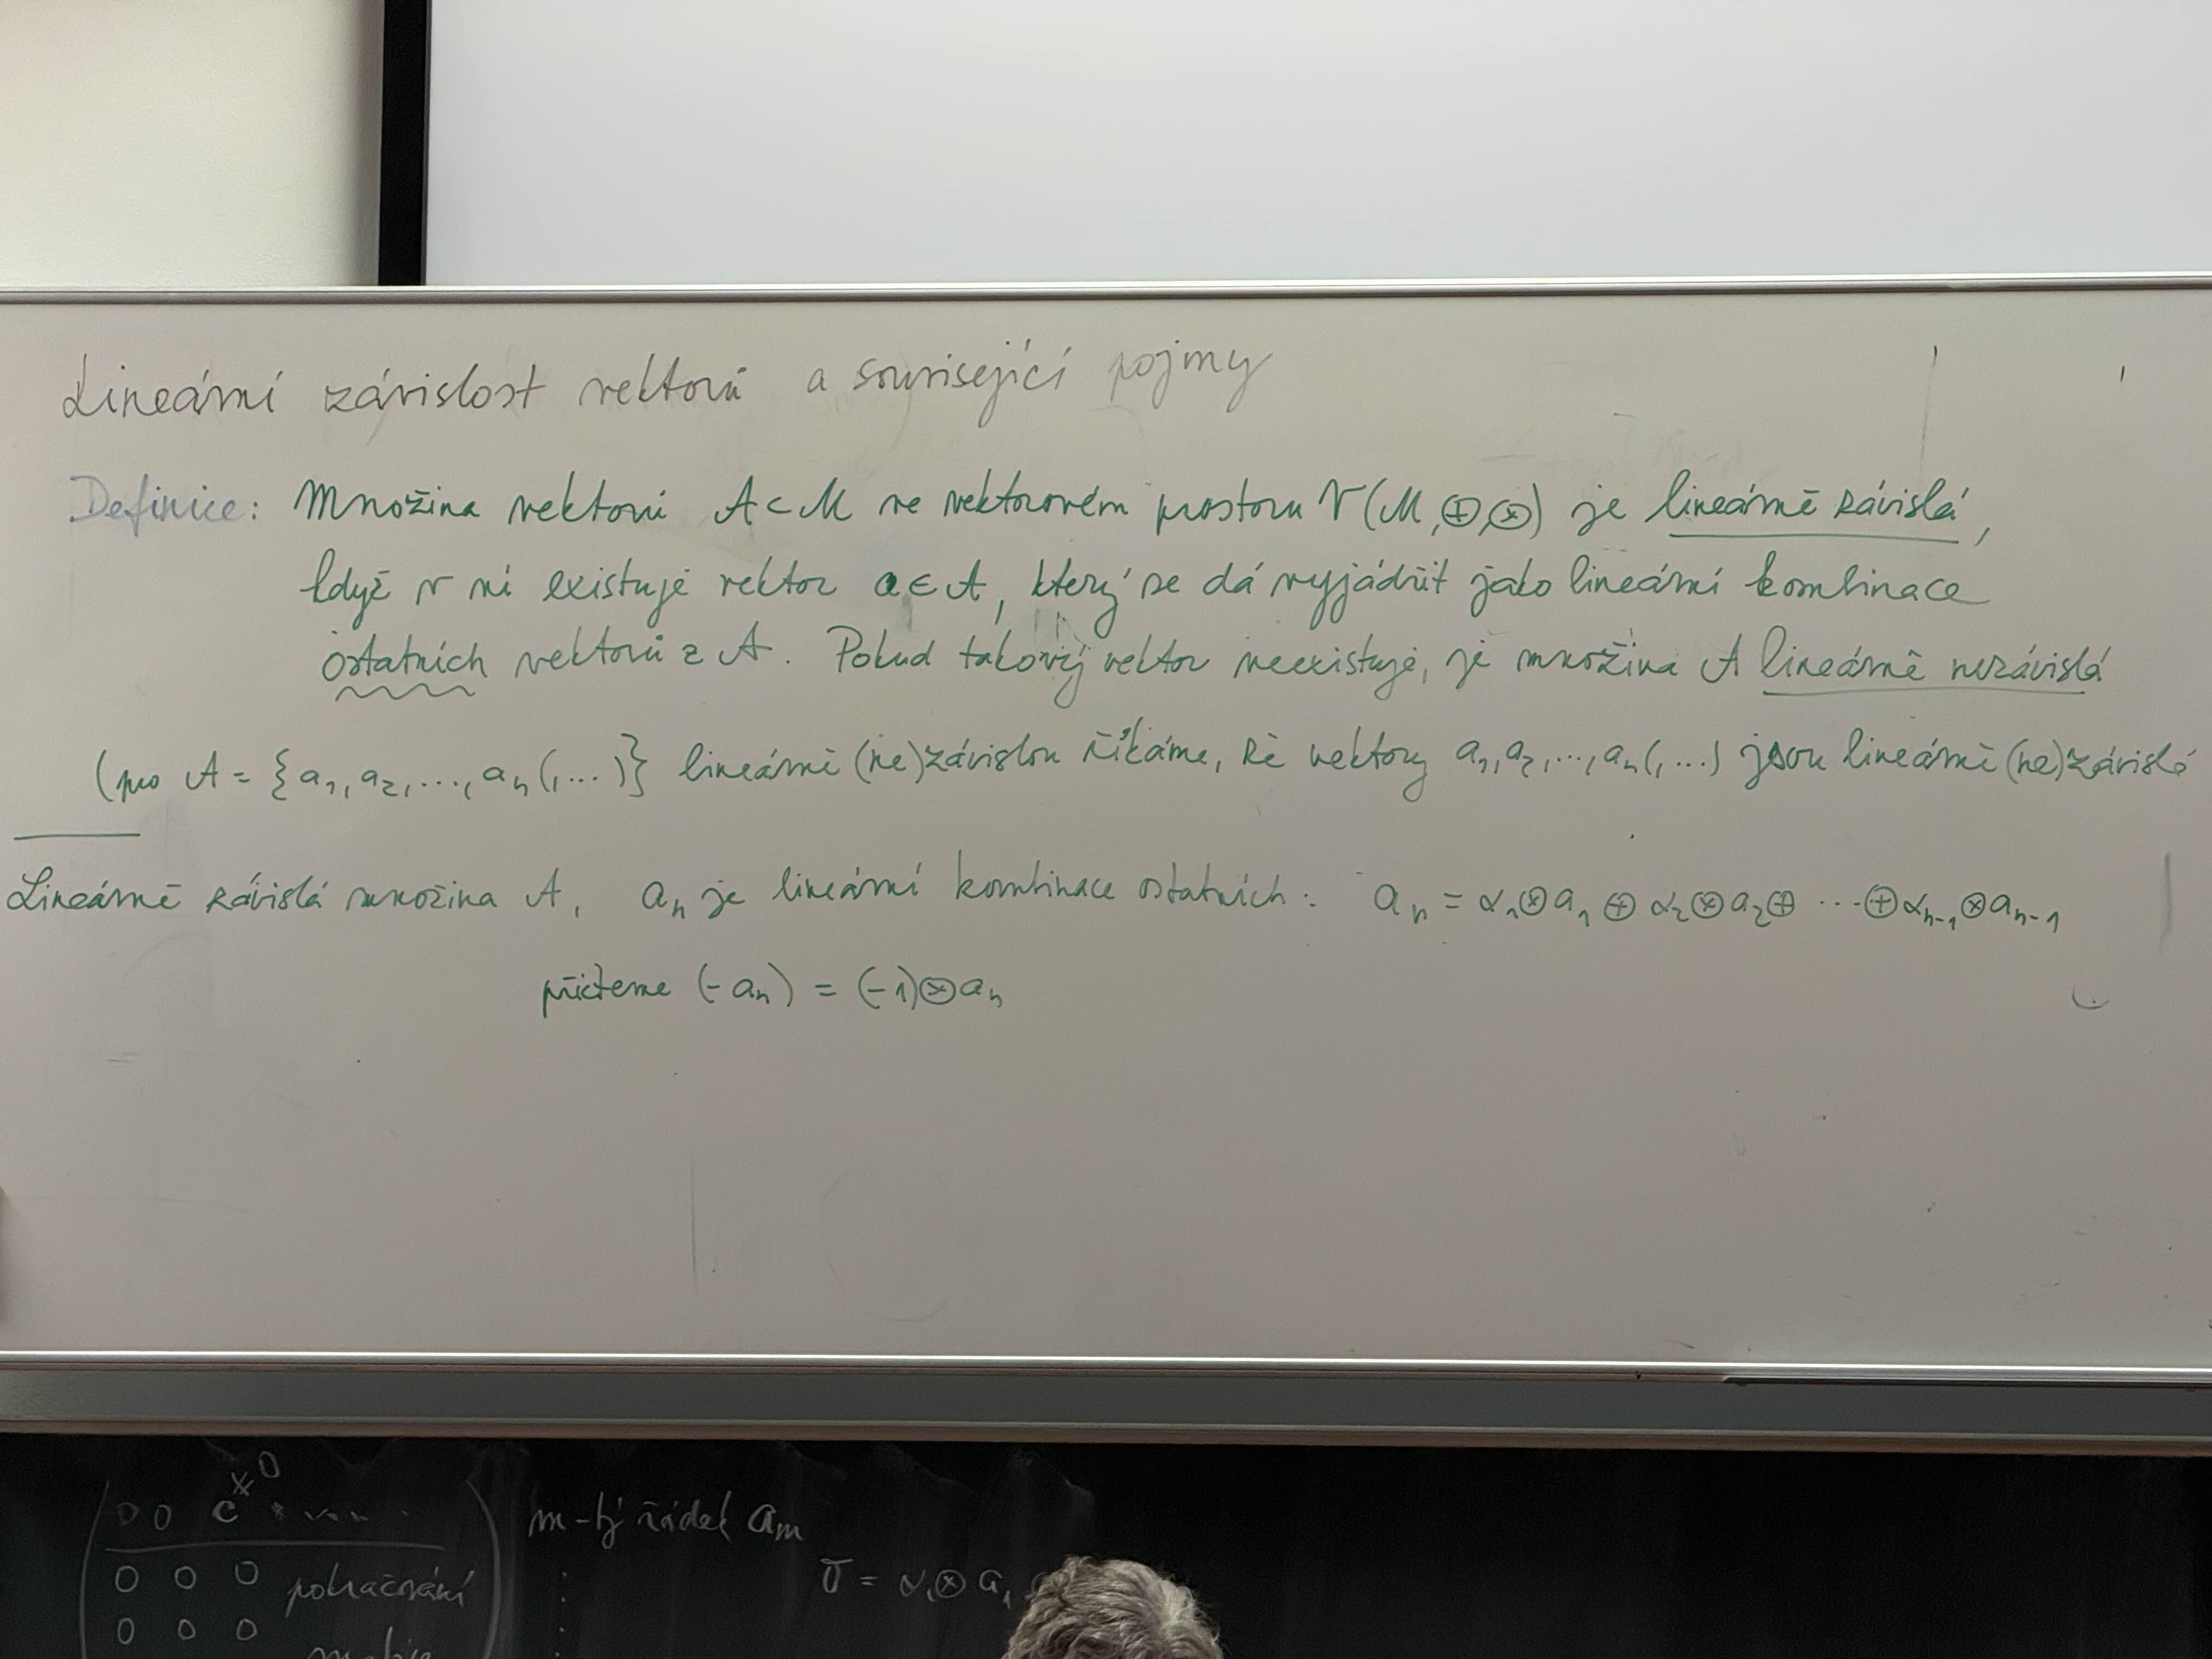 Lineární závislost vektorů a související pojmy
Definice: Množina vektorů A ⊂ M ve vektorovém prostoru V(M,⊕,⊗) je lineárně závislá,
když v ní existuje vektor a ∈ A, který se dá vyjádřit jako lineární kombinace
ostatních vektorů z A. Pokud takový vektor neexistuje, je množina A lineárně nezávislá
(pro A = {a₁, a₂, ..., aₙ(,...)} lineárně (ne)závislou říkáme, že vektory a₁, a₂, ..., aₙ(,...) jsou lineárně (ne)závislé
Lineárně závislá množina A, aₙ je lineární kombinace ostatních: aₙ = α₁⊗a₁ ⊕ α₂⊗a₂ ⊕ ... ⊕ αₙ₋₁⊗aₙ₋₁
přičteme (-aₙ) = (-1)⊗aₙ
0 0 c * 0 m-tý řádek aₘ
0 0 0 pokračování
0 0 0
ō = α₁⊗a₁